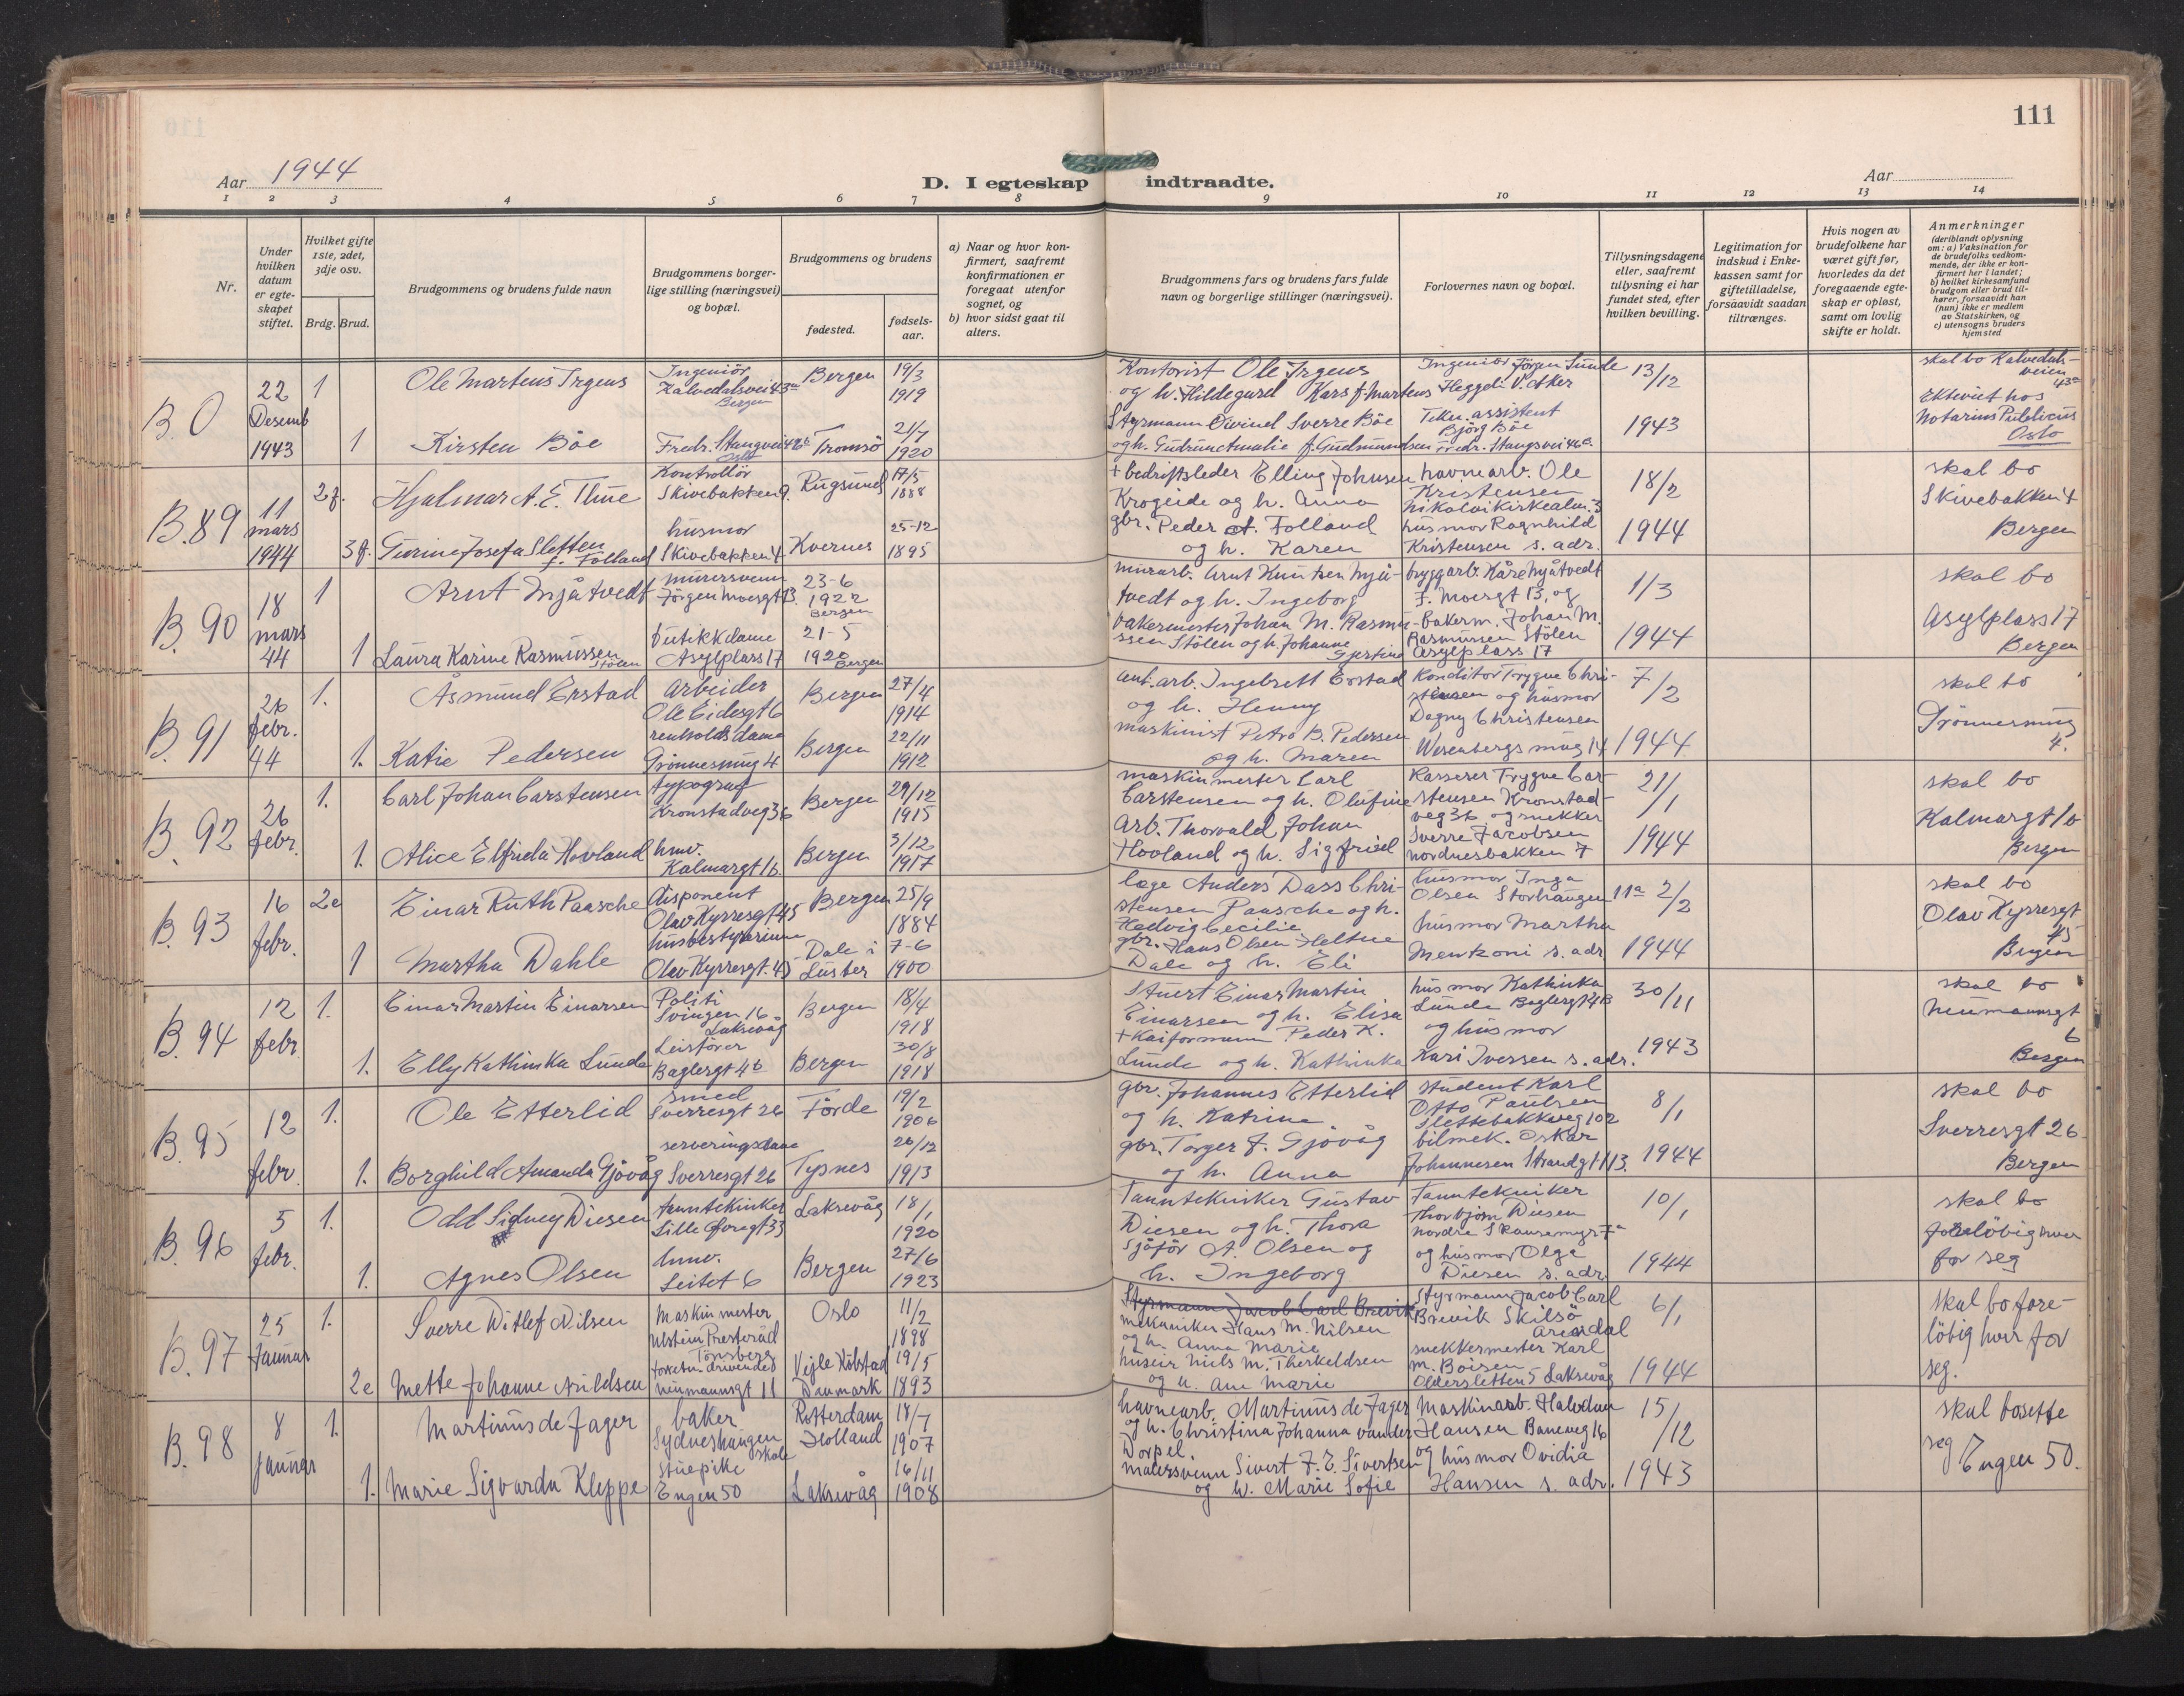 111
Aar 1944
D. I egteskap indtraadte.
Aar
1 2 3 4 5 6 7 8 9 10 11 12 13 14
Nr.
Under hvilken datum er egteskapet stiftet.
Hvilket gifte 1ste, 2det, 3dje osv.
Brdg. Brud.
Brudgommens og brudens fulde navn
Brudgommens borgerlige stilling (næringsvei) og bopæl.
Brudgommens og brudens
fødested.
fødselsaar.
a) Naar og hvor konfirmert, saafremt konfirmationen er foregaat utenfor sognet, og
b) hvor sidst gaat til alters.
Brudgommens fars og brudens fars fulde navn og borgerlige stillinger (næringsvei).
Forlovernes navn og bopæl.
Tillysningsdagene eller, saafremt tillysning ei har fundet sted, efter hvilken bevilling.
Legitimation for indskud i Enkekassen samt for giftetilladelse, forsaavidt saadan tiltrænges.
Hvis nogen av brudefolkene har været gift før, hvorledes da det foregaaende egteskap er opløst, samt om lovlig skifte er holdt.
Anmerkninger
(deriblandt oplysning om: a) Vaksination for de brudefolks vedkommende, der ikke er konfirmert her i landet; b) hvilket kirkesamfund brudgom eller brud tilhører, forsaavidt han (hun) ikke er medlem av Statskirken, og c) utensogns bruders hjemsted
B. 0
22 Desemb 1943
1
Ole Martens Irgens
Ingeniör Kalvedalsvei 43a Bergen
Bergen
19/3 1919
Kontorist Ole Irgens og h. Hildegard Kars f. Martens
Ingeniör Jörgen Sunde Heggeli V. Aker
13/12
skal bo Kalvedalsveien 43a
1
Kirsten Böe
Fredr. Stangvei 46a Oslo
Tromsö
21/7 1920
Styrmann Öivind Sverre Böe og h. Gudrun Amalie f. Gudmundsen
Tekn. assistent Björg Böe Fredr. Stangsvei 46a.
1943
Ektevied hos Notarius Publicus Oslo
B. 89
11 mars 1944
2f.
Hjalmar A. E. Thue
Kontrollör Skivebakken 9.
Rugsund
17/5 1888
+ bedriftsleder Elling Johnsen Krogeide og h. Anna
havnearb. Ole Kristensen Nikolaikirkealm. 3
18/2
skal bo Skivebakken 4 Bergen
3f.
Turine Josefa Sletten f. Folland
husmor Skivebakken 4
Kvernes
25-12 1895
gbr. Peder A. Folland og h. Karen
husmor Ragnhild Kristensen s. adr.
1944
B. 90
18 mars 44
1
Arnt Mjåtvedt
murersvenn Jörgen Moesgt 13.
23-6 1922 Bergen
murarb. Arnt Knutsen Mjåtvedt og h. Ingeborg
bryggarb. Kåre Mjåtvedt J. Moesgt 13, og
1/3
skal bo Asylplass 17 Bergen
1
Laura Karine Rasmussen Stölen
butikkdame Asylplass 17
21-5 1920 Bergen
bakermester Johan M. Rasmussen Stölen og h. Johanne Gjertine
bakerm. Johan M. Rasmussen Stölen Asylplass 17
1944
B. 91
26 febr. 44
1.
Åsmund Erstad
Arbeider Ole Eidesgt 6
Bergen
27/4 1914
aut. arb. Ingebrett Erstad og h. Henny
Konditor Trygve Christensen og husmor
7/2
skal bo Grönnesmug 4.
1.
Katie Pedersen
renholdsdame Grönnesmug 4
Bergen
22/11 1912
maskinist Petro B. Pedersen og h. Maren
Dagny Christensen Wesenbergs mug 14
1944
B. 92
26 febr.
1.
Carl Johan Carstensen
typograf Kronstadveg 36
Bergen
29/12 1915
maskinmester Carl Carstensen og h. Olufine
Kasserer Trygve Carstensen Kronstadveg 36 og snekker
21/1
skal bo Kalmargt 1b Bergen
1.
Alice Elfrida Hovland
hmv. Kalmargt 1b.
Bergen
3/12 1917
Arb. Thorvald Johan Hovland og h. Sigfried
Sverre Jacobsen Nordnesbakken 7
1944
B. 93
16 febr.
2e
Einar Ruth Paasche
disponent Olav Kyrresgt 45
Bergen
25/9 1884
læge Anders Dass Christensen Paasche og h. Hedvig Cecilie
husmor Inga Olsen Storhaugen 11a
2/2
skal bo Olav Kyrresgt 45 Bergen
1
Martha Dahle
husbestyrerinne Olav Kyrresgt. 45
Dale i Luster
7-6 1900
gbr. Hans Olsen Heltne Dale og h. Eli
husmor Martha Mentzoni s. adr
1944
B. 94
12 febr.
1.
Einar Martin Einarsen
Politi Svingen 16 Laksevåg
Bergen
18/4 1918
Stuert Einar Martin Einarsen og h. Elisa
husmor Kathinka Lunde Baglergt 4B
30/11
skal bo Neumannsgt 6 Bergen
1.
Elly Kathinka Lunde
Leisförer Baglergt 4b
Bergen
30/8 1918
+ Kaiformann Peder K. Lunde og h. Kathinka
og husmor Kari Iversen s. adr.
1943
B. 95
12 febr.
1.
Ole Etterlid
smed Sverresgt 26
Förde
19/2 1906
gbr. Johannes Etterlid og h. Katrine
student Karl Otto Paulsen Slettebakkveg 102
8/1
skal bo Sverresgt 26 Bergen
1.
Borghild Amanda Gjövåg
serveringsdame Sverresgt 26
Tysnes
26/12 1913
gbr. Torger J. Gjövåg og h. Anna
bilmek. Oskar Johannesen Strandgt 113.
1944
B. 96
5 febr.
1.
Odd Sidney Diesen
tanntekniker Lille Övregt 33
Laksevåg
18/1 1920
Tanntekniker Gustav Diesen og h. Thora
Tanntekniker Thorbjörn Diesen Nordre Skansemyr 7a
10/1
skal bo foreløbig hver for seg
1.
Agnes Olsen
hmv. Leitet 6
Bergen
27/6 1923
Sjåför A. Olsen og h. Ingeborg
og husmor Olga Diesen s. adr.
1944
B. 97
25 Januar
1.
Sverre Ditlef Nilsen
Maskinmester Ulstein Presteråd Tönsberg
Oslo
11/2 1898
Styrmann Jacob Carl Brevik
mekaniker Hans M. Nilsen og h. Anna Marie
Styrmann Jacob Carl Brevik Skilsö Arendal
6/1
skal bo forelöbig hver for seg.
2e
Mette Johanne Nildsen
forretn. drivende Neumannsgt 11
Vejle Köbstad Danmark
19/5 1893
huseier Niels M. Therkeldsen og h. Ane Marie
snekkermester Karl M. Boisen Olderstetten 5 Laksevåg
1944
B. 98
8 januar
1.
Martinus de Jager
baker Sydneshaugen skole
Rotterdam Holland
18/7 1907
havnearb. Martinus de Jager og h. Christina Johanna van der Dorpel.
Maskinarb. Halvdan Hansen Baneveg 16
15/12
skal bosette seg Engen 50.
1.
Marie Sigvarda Kleppe
stuepike Engen 50
Laksevåg
16/11 1908
malersvenn Sivert F. E. Sivertsen og h. Marie Sofie
og husmor Ovidia Hansen s. adr.
1943